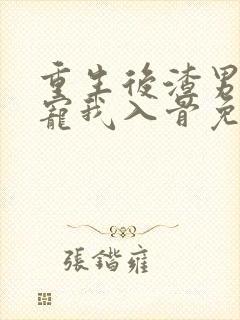 重生後渣男
寵我入骨免
張鍇雍